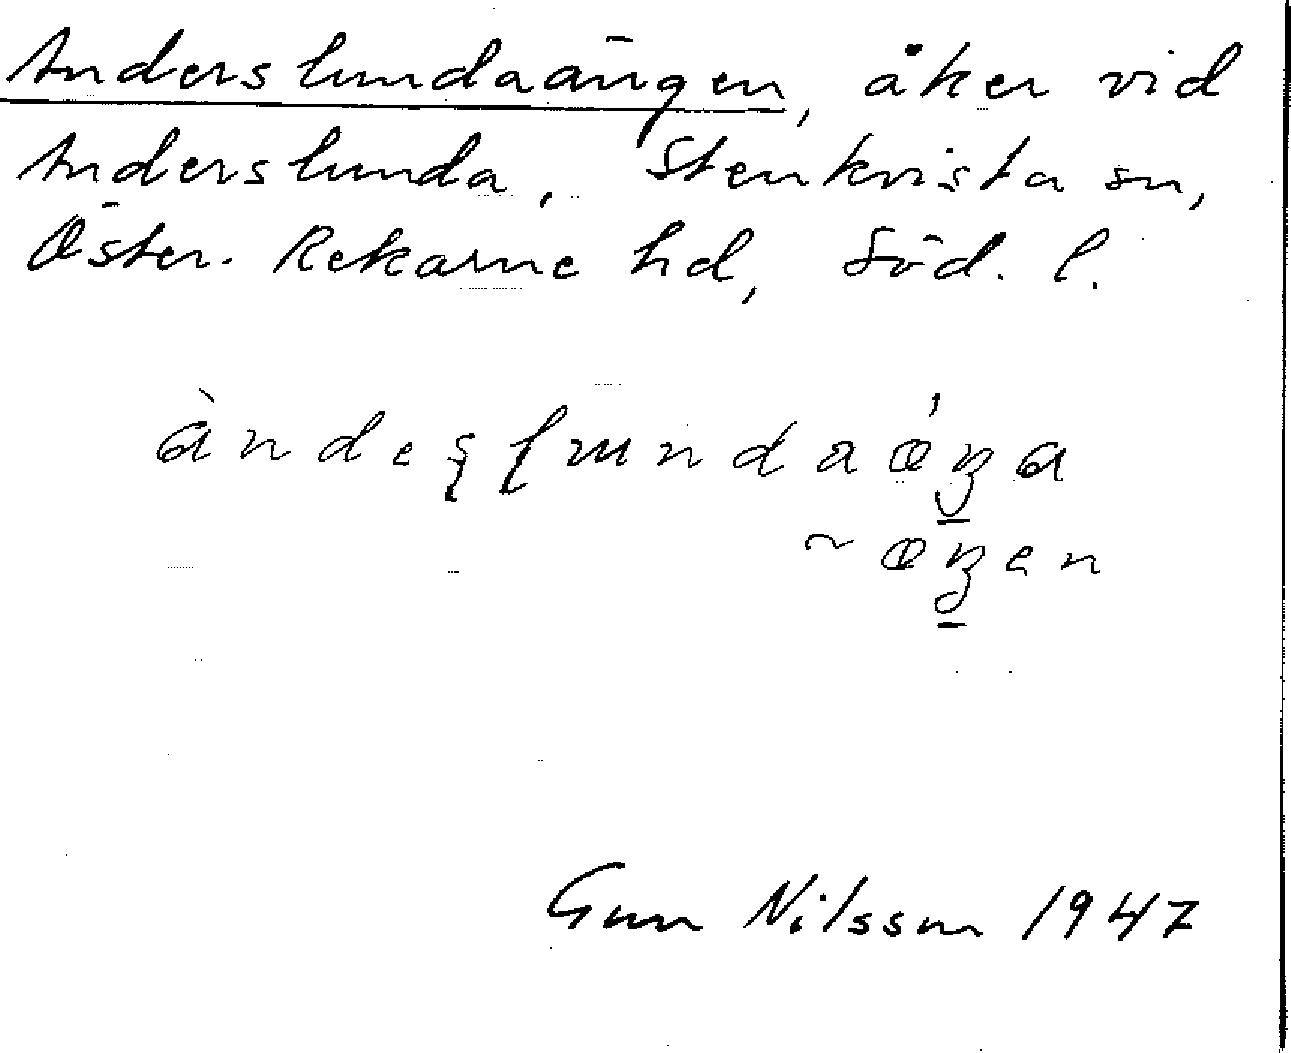 Anderslundaängen, åker vid
Anderslunda, Stenkvista sn,
Öster-Rekarne hd, Söd. l.
Gun Nilsson 1947